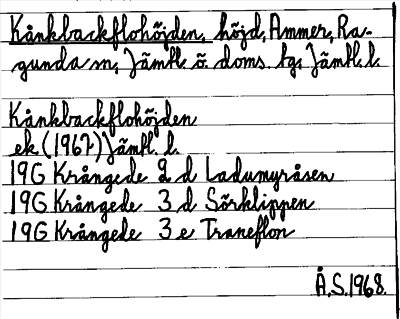 Kånkbackflohöjden, höjd, Ammer, Ra-
gunda sn, Jämtl. ö. doms. tg, Jämtl. l.
Kånkbackflohöjden
ek. (1967) Jämtl. l.
19G Krångede 2 d Ladumyråsen
19G Krångede 3 d Sörklippen
19G Krångede 3 e Traneflon
Å.S. 1968.